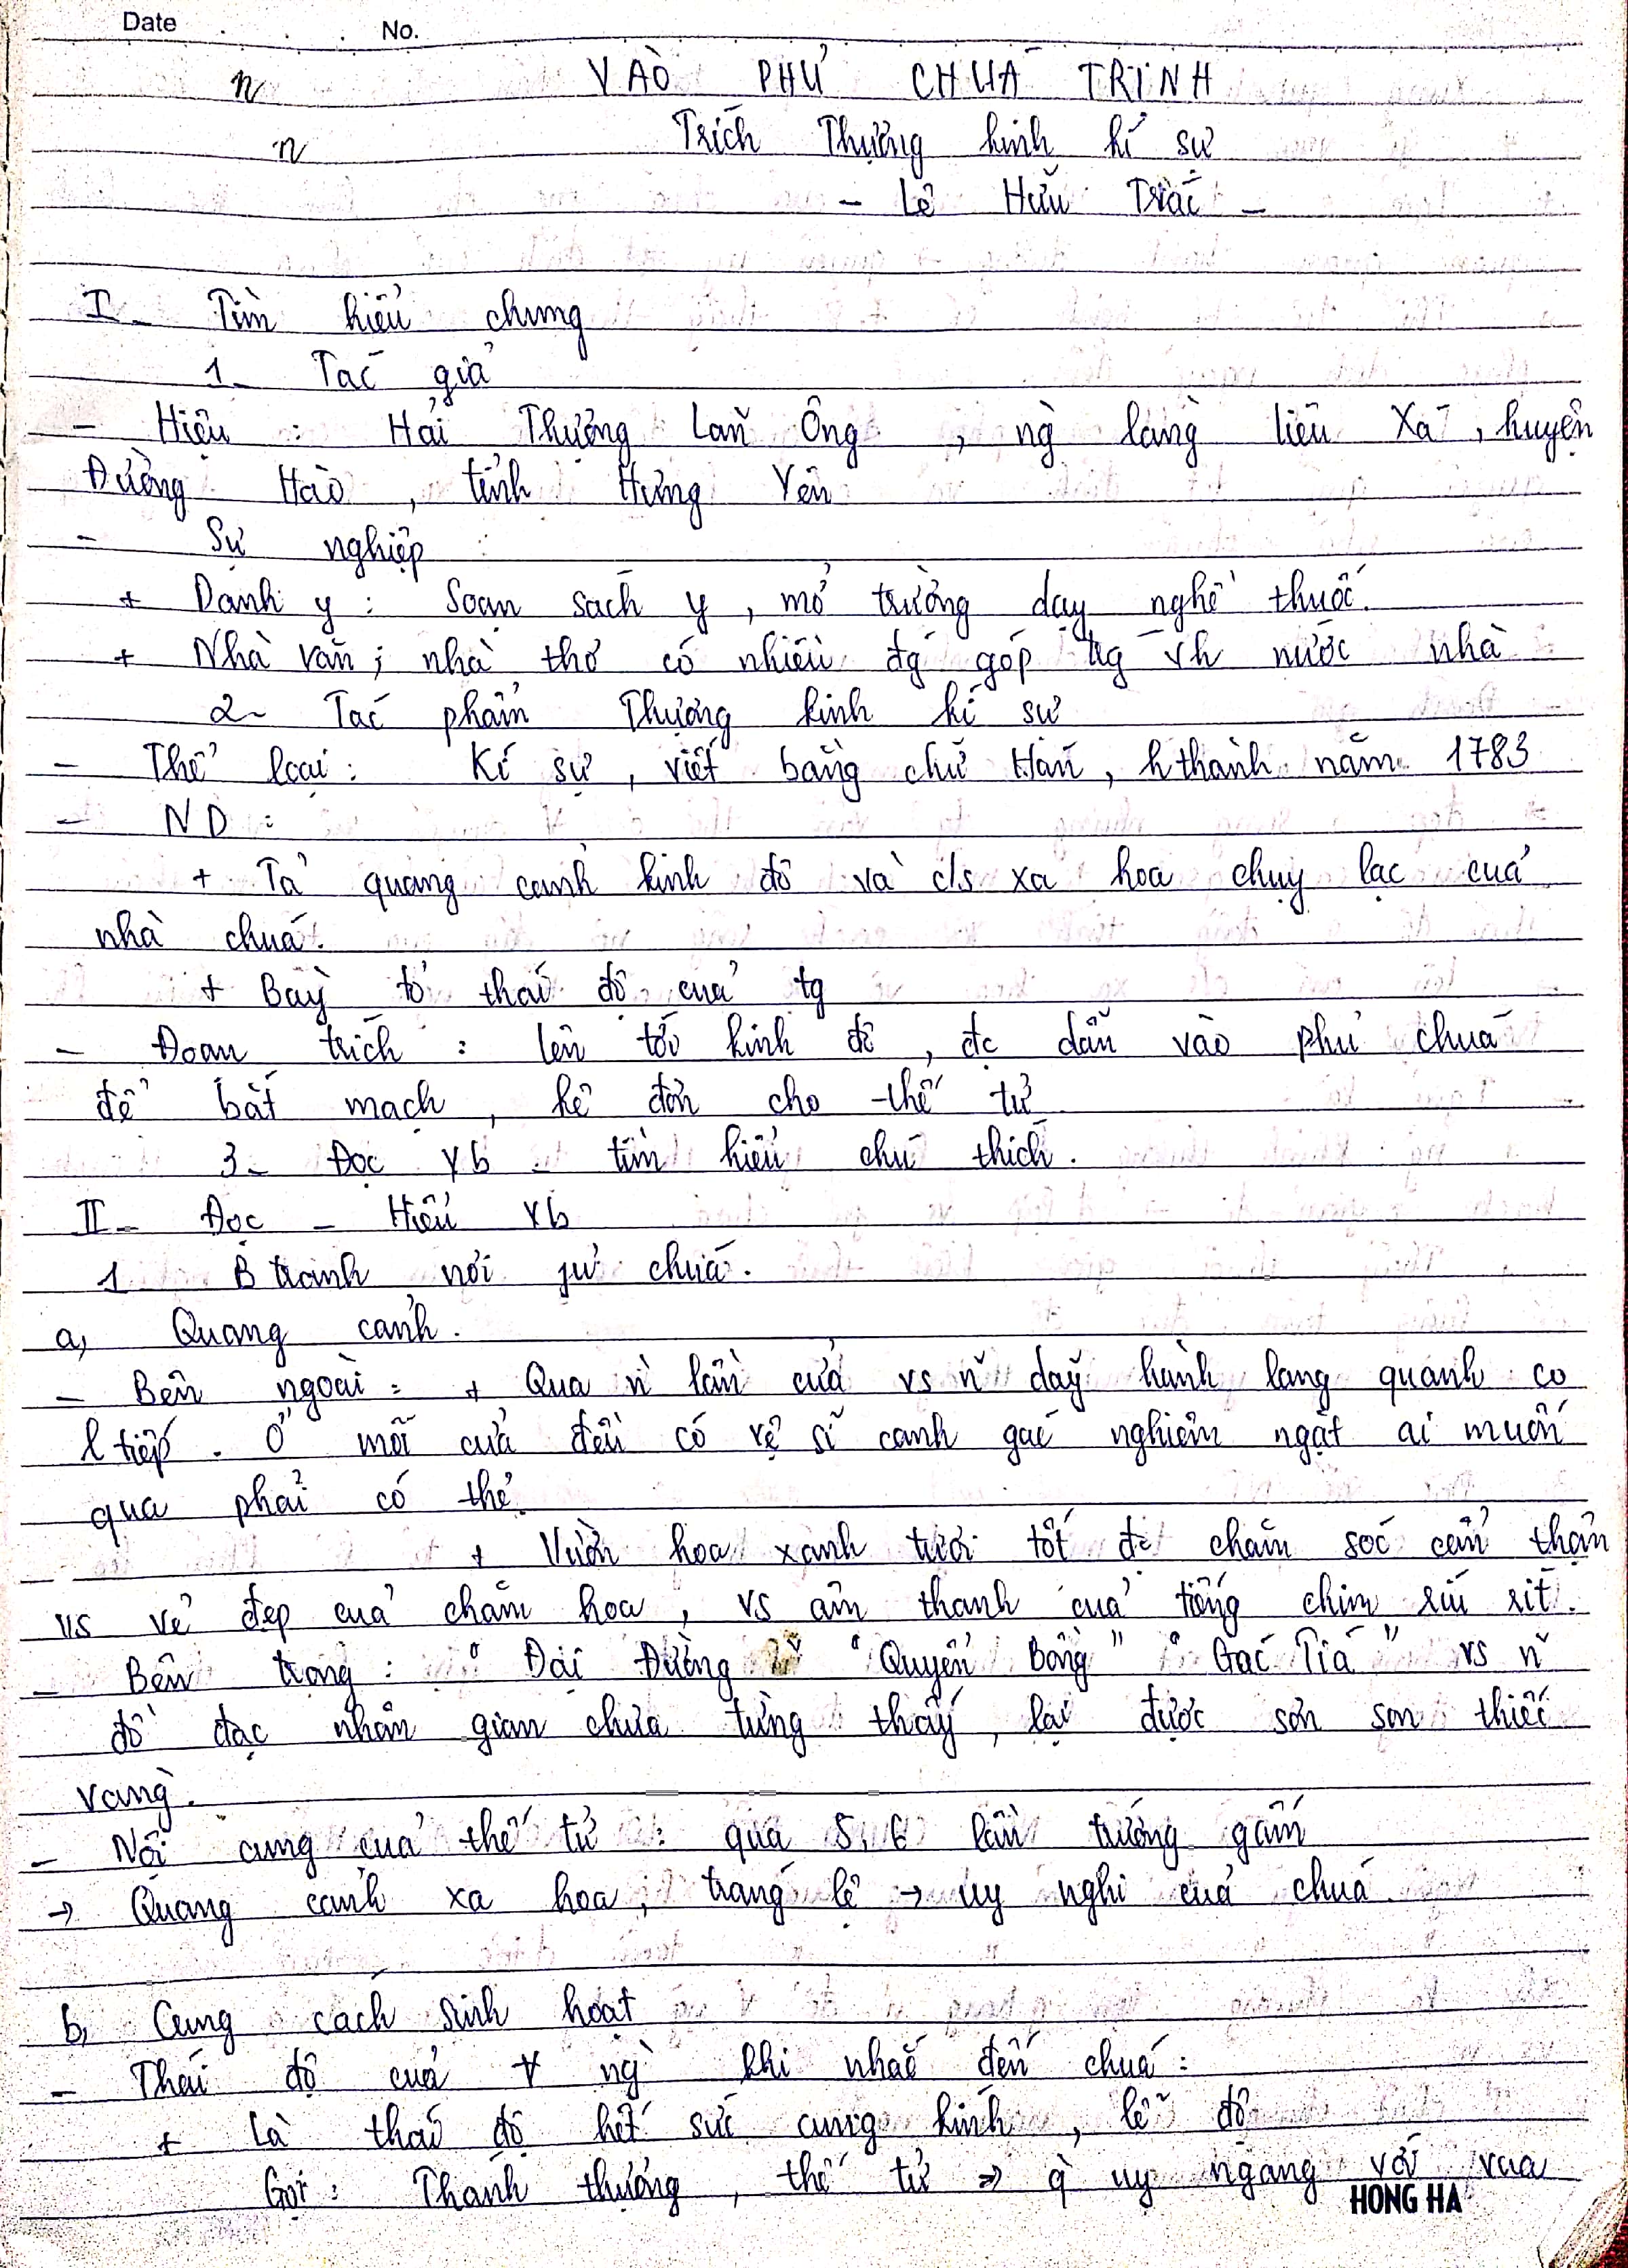 Date No.
n VÀO PHỦ CHÚA TRỊNH
n Trích Thượng kinh kí sự
- Lê Hữu Trác -
I- Tìm hiểu chung
1- Tác giả
- Hiệu : Hải Thượng Lãn Ông , ng` làng liêu Xá , huyện
Đường Hào , tỉnh Hưng Yên
- Sự nghiệp :
+ Danh y : Soạn sách y , mở trường dạy nghề thuốc.
+ Nhà văn ; nhà thơ có nhiều đg góp tg vh nước nhà
2- Tác phẩm Thượng kinh kí sự
- Thể loại : Kí sự , viết bằng chữ Hán , h thành năm 1783
- ND :
+ Tả quang cảnh kinh đô và c/s xa hoa chụy lạc của
nhà chúa.
+ Bày tỏ thái độ của tg
- Đoạn trích : lên tới kinh đô , đc dẫn vào phủ chúa
để bắt mạch , kê đơn cho thế tử
3- Đọc vb - tìm hiểu chú thích.
II- Đọc - Hiểu vb
1 B tranh nơi phủ chúa.
a, Quang cảnh.
- Bên ngoài : + Qua n` lần cửa vs n~ dãy hành lang quanh co
l tiếp . Ở mỗi cửa đều có vệ sĩ canh gác nghiêm ngặt ai muốn
qua phải có thẻ
+ Vườn hoa xanh tươi tốt đc chăm sóc cẩn thận
vs vẻ đẹp của chăm hoa , vs âm thanh của tiếng chim ríu rít.
- Bên trong : " Đại Đường " " Quyển bồng " " Gác Tía " vs n~
đồ đạc nhân gian chưa từng thấy , lại được sơn son thiếc
vàng.
- Nội cung của thế tử : qua 5, 6 lần trướng gấm
→ Quang cảnh xa hoa , tráng lệ → uy nghi của chúa.
b, Cung cách sinh hoạt
- Thái độ của ∀ ng` khi nhắc đến chúa :
+ Là thái độ hết sức cung kính , lễ độ
Gọi : Thánh thượng , thế tử ⇒ q` uy ngang với vua
HONG HA